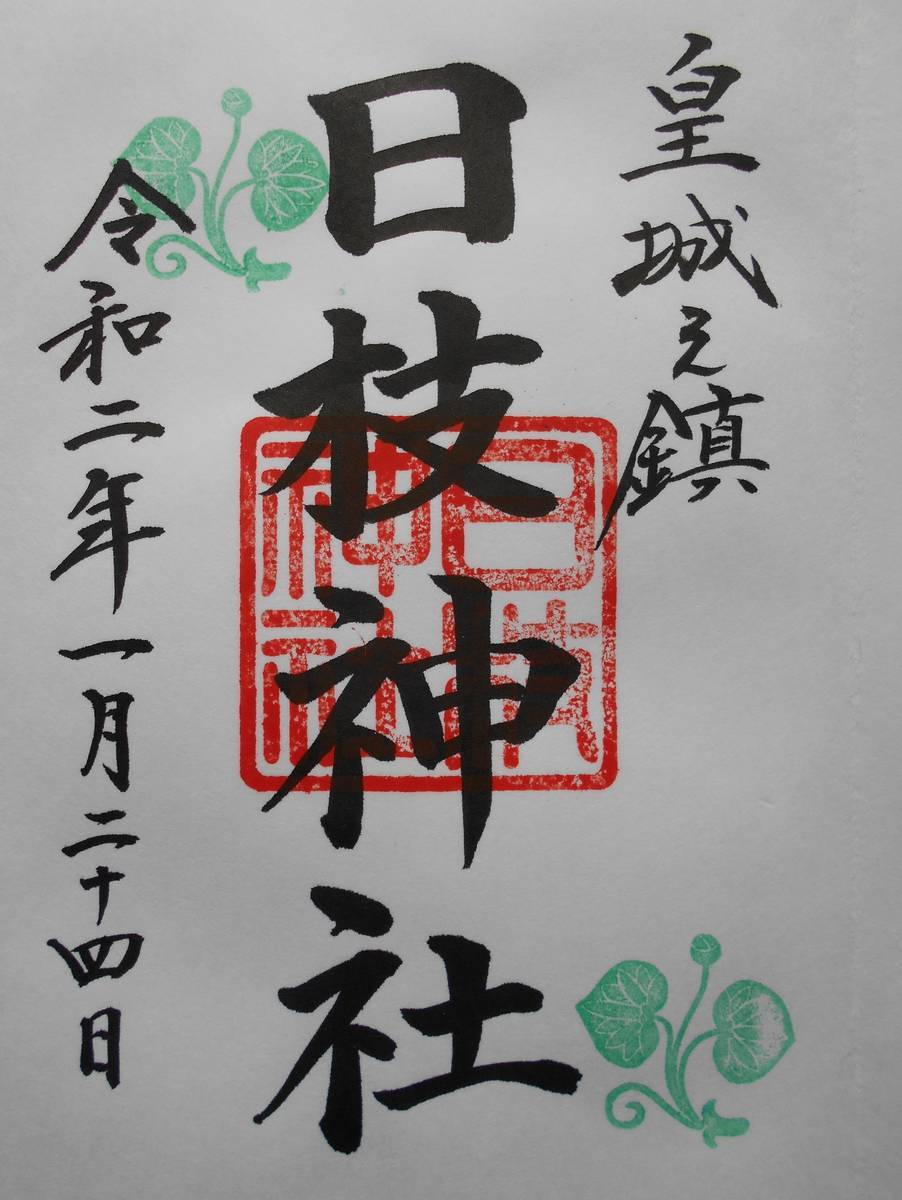 皇城之鎮
日枝神社
日枝神社
令和二年一月二十四日